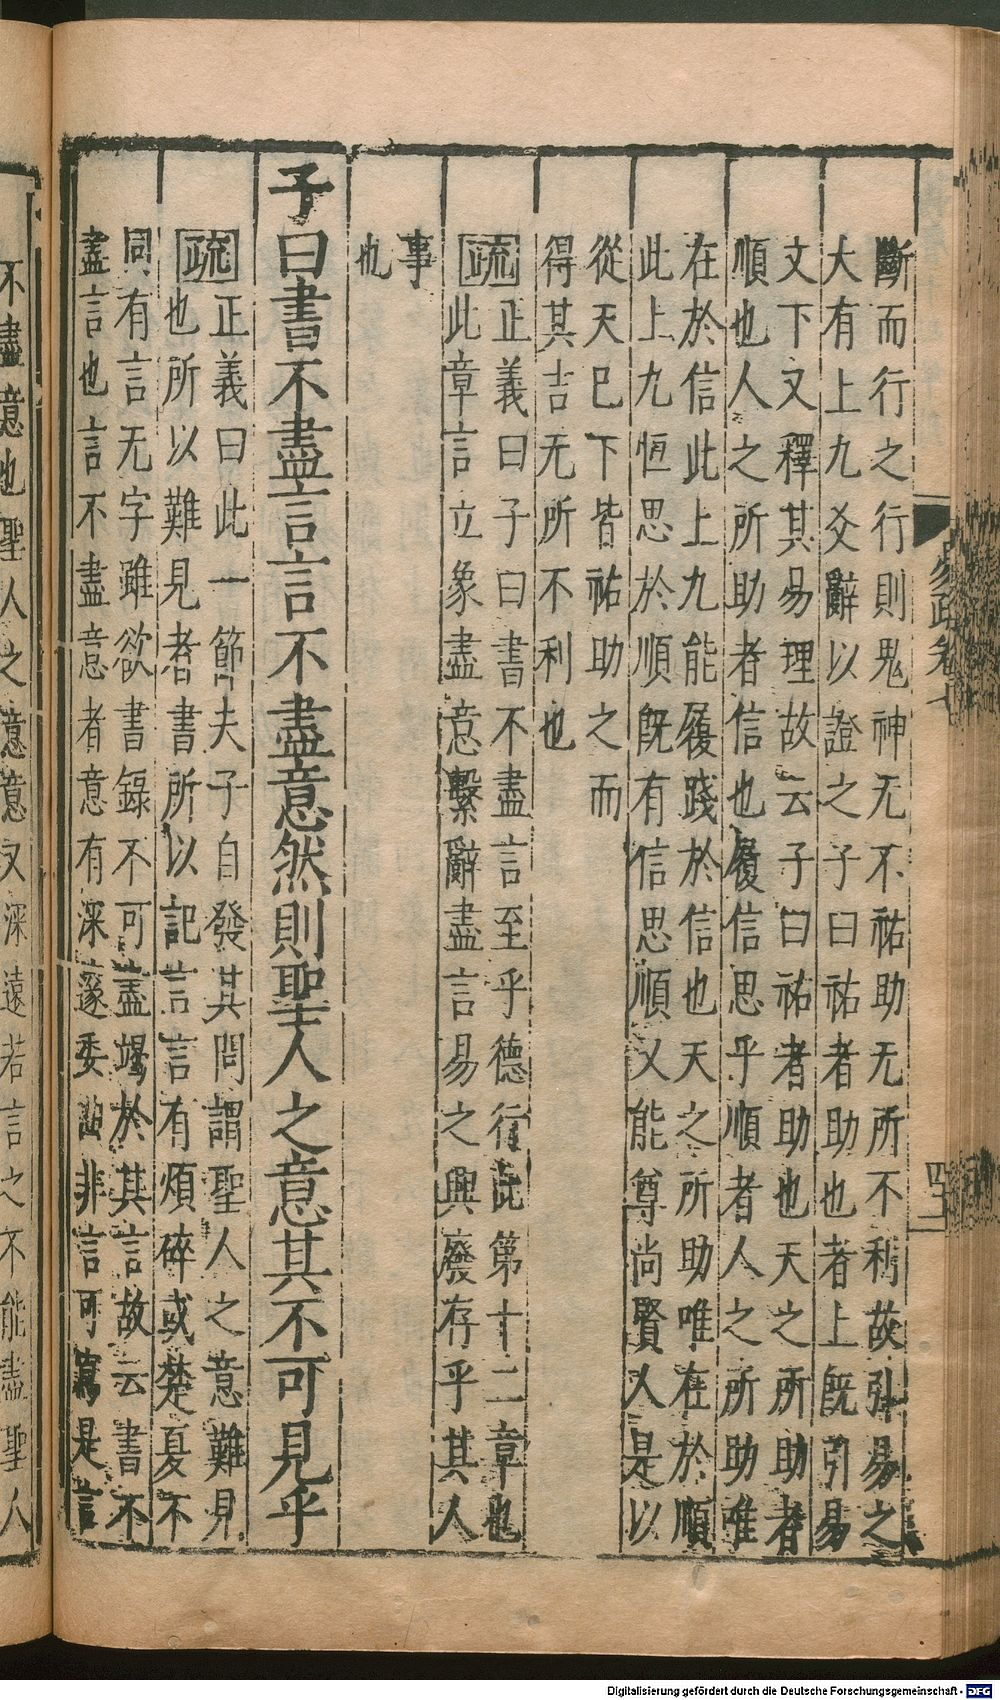 斷而行之行則鬼神无不祐助无所不利故引易之
大有上九爻辭以證之子曰祐者助也者上既引易
文下又釋其易理故云子曰祐者助也天之所助者
順也人之所助者信也履信思乎順者人之所助唯
在於信此上九能履踐於信也天之所助唯在於順
此上九恒思於順既有信思順又能尊尚賢人是以
從天已下皆祐助之而
得其吉无所不利也
疏正義曰子曰書不盡言至乎德行此第十二章也
此章言立象盡意繫辭盡言易之興廢存乎其人
事
也
子曰書不盡言言不盡意然則聖人之意其不可見乎
疏正義曰此一節夫子自發其問謂聖人之意難見
也所以難見者書所以記言言有煩碎或楚夏不
同有言无字雖欲書錄不可盡竭於其言故云書不
盡言也言不盡意者意有深邃委曲非言可寫是言
不盡意也聖人之意意又深遠若言之不能盡聖人
易疏卷七
Digitalisierung gefördert durch die Deutsche Forschungsgemeinschaft - DFG